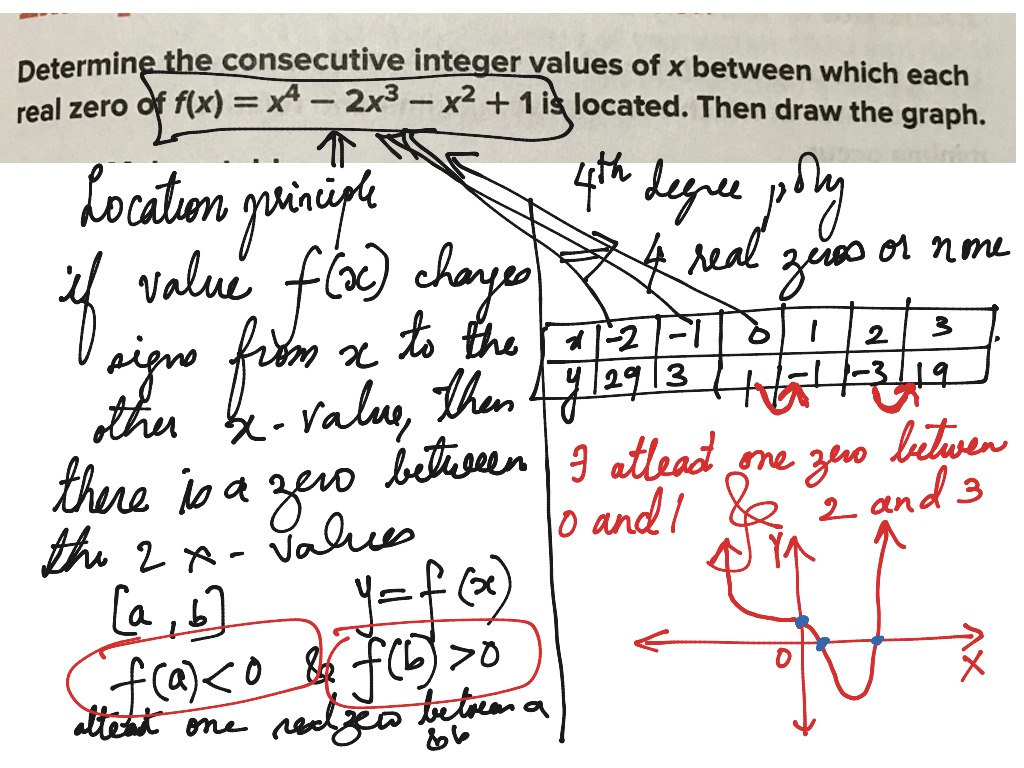 Determine the consecutive integer values of x between which each
real zero of f(x) = x⁴ − 2x³ − x² + 1 is located. Then draw the graph.
Location principle
if value f(x) changes
signs from x to the
other x-value, then
there is a zero between
the 2 x-values
[a, b] y = f(x)
f(a) < 0 & f(b) > 0
atleast one real zero between a
& b
4th degree poly
4 real zeros or none
x -2 -1 0 1 2 3
y 29 3 1 -1 -3 19
∃ atleast one zero between
0 and 1 & 2 and 3
Y
0
X